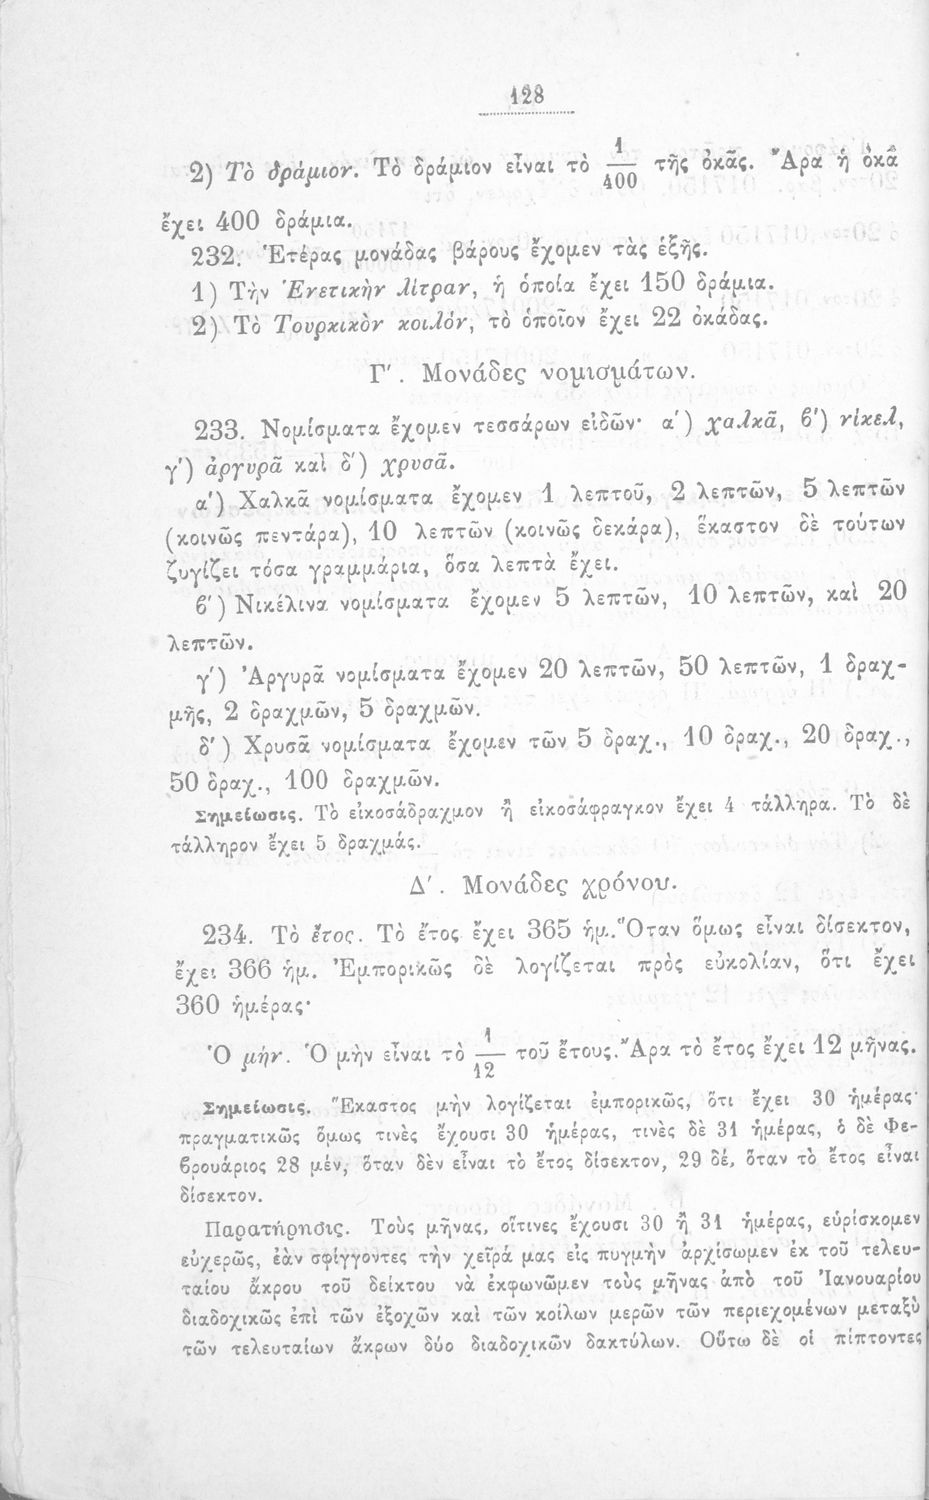 128
2) Τὸ δράμιον. Τὸ δράμιον εἶναι τὸ 1/400 τῆς ὀκᾶς. Ἄρα ἡ ὀκᾶ
ἔχει 400 δράμια.
232. Ἑτέρας μονάδας βάρους ἔχομεν τὰς ἑξῆς.
1) Τὴν Ἐνετικὴν λίτραν, ἡ ὁποία ἔχει 150 δράμια.
2) Τὸ Τουρκικὸν κοιλόν, τὸ ὁποῖον ἔχει 22 ὀκάδας.
Γ′. Μονάδες νομισμάτων.
233. Νομίσματα ἔχομεν τεσσάρων εἰδῶν· α′) χαλκᾶ, β′) νίκελ,
γ′) ἀργυρᾶ καὶ δ′) χρυσᾶ.
α′) Χαλκᾶ νομίσματα ἔχομεν 1 λεπτοῦ, 2 λεπτῶν, 5 λεπτῶν
(κοινῶς πεντάρα), 10 λεπτῶν (κοινῶς δεκάρα), ἕκαστον δὲ τούτων
ζυγίζει τόσα γραμμάρια, ὅσα λεπτὰ ἔχει.
β′) Νικέλινα νομίσματα ἔχομεν 5 λεπτῶν, 10 λεπτῶν, καὶ 20
λεπτῶν.
γ′) Ἀργυρᾶ νομίσματα ἔχομεν 20 λεπτῶν, 50 λεπτῶν, 1 δραχ-
μῆς, 2 δραχμῶν, 5 δραχμῶν.
δ′) Χρυσᾶ νομίσματα ἔχομεν τῶν 5 δραχ., 10 δραχ., 20 δραχ.,
50 δραχ., 100 δραχμῶν.
Σημείωσις. Τὸ εἰκοσάδραχμον ἢ εἰκοσάφραγκον ἔχει 4 τάλληρα. Τὸ δὲ
τάλληρον ἔχει 5 δραχμάς.
Δ′. Μονάδες χρόνου.
234. Τὸ ἔτος. Τὸ ἔτος ἔχει 365 ἡμ. Ὅταν ὅμως εἶναι δίσεκτον,
ἔχει 366 ἡμ. Ἐμπορικῶς δὲ λογίζεται πρὸς εὐκολίαν, ὅτι ἔχει
360 ἡμέρας·
Ὁ μήν. Ὁ μὴν εἶναι τὸ 1/12 τοῦ ἔτους. Ἄρα τὸ ἔτος ἔχει 12 μῆνας.
Σημείωσις. Ἕκαστος μὴν λογίζεται ἐμπορικῶς, ὅτι ἔχει 30 ἡμέρας·
πραγματικῶς ὅμως τινὲς ἔχουσι 30 ἡμέρας, τινὲς δὲ 31 ἡμέρας, ὁ δὲ Φε-
βρουάριος 28 μέν, ὅταν δὲν εἶναι τὸ ἔτος δίσεκτον, 29 δέ, ὅταν τὸ ἔτος εἶναι
δίσεκτον.
Παρατήρησις. Τοὺς μῆνας, οἵτινες ἔχουσι 30 ἢ 31 ἡμέρας, εὑρίσκομεν
εὐχερῶς, ἐὰν σφίγγοντες τὴν χεῖρά μας εἰς πυγμὴν ἀρχίσωμεν ἐκ τοῦ τελευ-
ταίου ἄκρου τοῦ δείκτου νὰ ἐκφωνῶμεν τοὺς μῆνας ἀπὸ τοῦ Ἰανουαρίου
διαδοχικῶς ἐπὶ τῶν ἐξοχῶν καὶ τῶν κοίλων μερῶν τῶν περιεχομένων μεταξὺ
τῶν τελευταίων ἄκρων δύο διαδοχικῶν δακτύλων. Οὕτω δὲ οἱ πίπτοντες